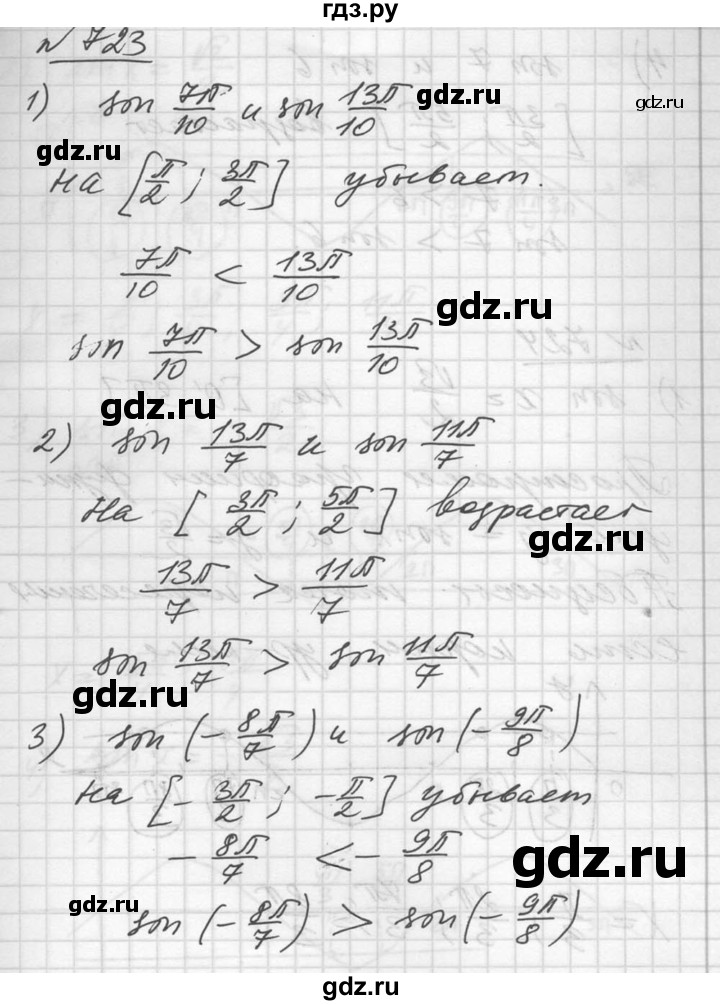 гдз.ру
№ 723
1) sin 7π/10 и sin 13π/10
gdz.ru
gdz.ru
gdz.ru
на [π/2; 3π/2] убывает.
7π/10 < 13π/10
gdz.ru
sin 7π/10 > sin 13π/10
gdz.ru
2) sin 13π/7 и sin 11π/7
на [3π/2; 5π/2] возрастает
gdz.ru
13π/7 > 11π/7
sin 13π/7 > sin 11π/7
gdz.ru
3) sin (-8π/7) и sin (-9π/8)
на [-3π/2; -π/2] убывает
-8π/7 < -9π/8
gdz.ru
gdz.ru
sin (-8π/7) > sin (-9π/8)
gdz.ru